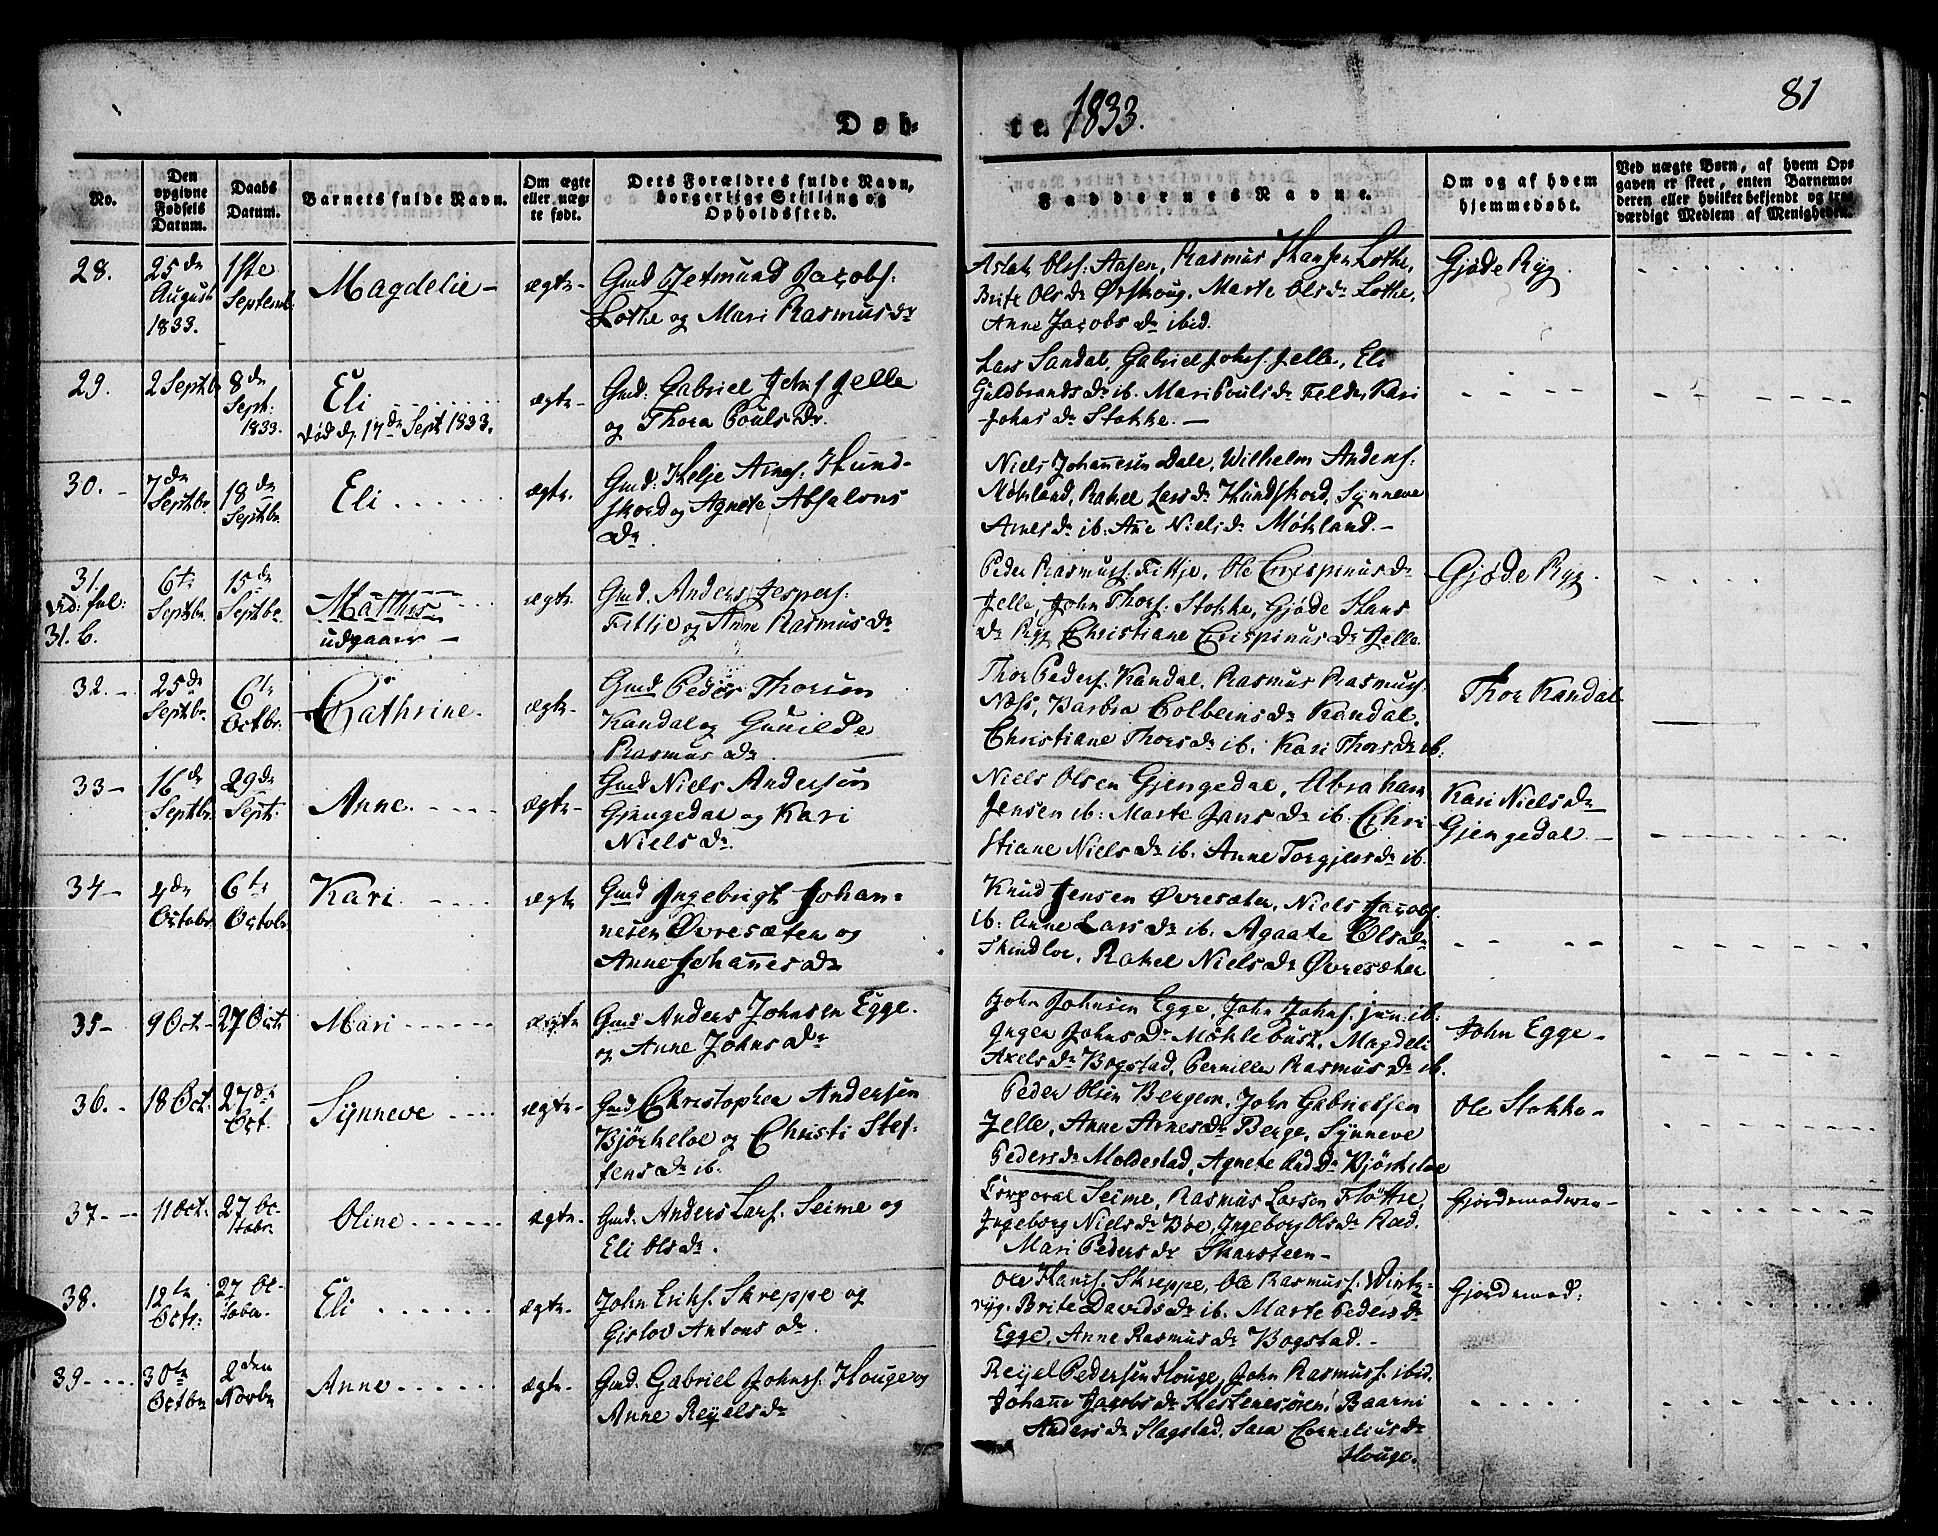 Døb-
te. 1833.
81
No.
Den opgivne Fødsels Datum.
Daabs Datum.
Barnets fulde Navn.
Om ægte eller uægte født.
Dets Forældres fulde Navn, borgerlige Stilling og Opholdssted.
Faddernes Navne.
Om og af hvem hjemmedøbt.
Ved uægte Børn, af hvem Opgaven er skeet, enten Barnemoderen eller hvilket bekjendt og troværdigt Medlem af Menigheden.
28.
25de August 1833.
1ste Septemb.
Magdelie -
ægte -
Gmd Jetmund Jacobs:
Lothe og Mari Rasmus dr
Aslak Ols: Aasen, Rasmus Hansen Lothe,
Brite Ols dr Ørskoug, Marte Ols dr Lothe,
Anne Jacobs dr ibid.
Gjøde Ryg.
29.
2 Septbr
8de Sept: 1833.
Eli
død d. 17de Sept 1833.
ægte -
Gmd: Gabriel Johs Jelle
og Thora Pouls dr.
Lars Sandal, Gabriel Johs. Jelle, Eli
Guldbrands dr ib. Mari Pouls dr Felde, Kari
Johas dr Stokke. -
30. -
7de Septbr
18de Septbr
Eli
ægte.
Gmd: Helje Arnes. Hund-
skord og Agnete Absalons
dr.
Niels Johannesen Dale, Wilhelm Anders:
Møkland, Rakel Lars dr Hundskord, Synneve
Arnes dr ib. Ane Niels dr Møkland. -
31.
vid: fol:
31. b.
6te Septbr.
15de Septbr
Mathis
udgaaer -
ægte
Gmd. Anders Jespers:
Fittje og Anne Rasmus dr
Peder Rasmuss: Fittje, Ole Crispinus dr
Jelle, John Thors: Stokke, Gjøde Hans
dr Ryg Christiane Crispinus dr Jelle.
Gjøde Ryg.
32. -
25de Septbr.
6te Octbr.
Cathrine.
ægte -
Gmd Peder Thorsen
Kandal og Gunilde
Rasmus dr
Thor Peders: Kandal, Rasmus Rasmus:
Næss, Barbra Colbeins dr Kandal.
Christiane Thors dr ib. Kari Thors dr ib.
Thor Kandal
33 -
16de Septbr.
29de Sept:
Anne.
ægte -
Gmd Niels Andersen
Gjengedal og Kari
Niels dr.
Niels Olsen Gjengedal, Abraham
Jensen ib: Marte Jans dr ib. Chri-
stiane Niels dr ib. Anne Torgjers dr ib.
Kari Niels dr
Gjengedal. -
34 -
4de Octobr
6te Octobr
Kari.
ægte
Gmd Ingebrigt Johan-
nesen Øvresæten og
Anne Johannes dr
Knud Jensen Øvresæter, Niels Jacobs.
ib: Anne Lars dr ib. Agaate Ols dr
Skindloe, Rakel Niels dr Øvresæter
35 -
9 Oct -
27 Oct
Mari
ægte
Gmd Anders Johnsen Egge.
og Anne Johns dr
John Johnsen Egge, John Johns. jun: ib:
Ingen Johns dr Møklebust, Magdeli
Axels dr Bogstad, Pernille Rasmus dr ib.
John Egge -
36. -
18 Oct.
27de Oct.
Synneve
ægte -
Gmd. Christopher Andersen
Bjørkeloe og Christi Stef-
fens dr ib.
Peder Olsen Bergem, John Gabrielsen
Jelle, Anne Arnes dr Berge, Synneve
Peders dr Moldestad, Agnete And dr Bjørkeloe
Ole Stokke -
37. -
11 Oct.
27 Octobr.
Oline
ægte -
Gmd. Anders Lars. Seime og
Eli Ols dr.
Corporal Seime, Rasmus Larsen Fløttre,
Ingeborg Niels dr Boe, Ingeborg Ols dr Roed.
Mari Peders dr Skarsteen -
Gjordemoderen -
38.
12te Octr:
27 October.
Eli
ægte -
John Eriks. Skreppe og
Gislov Antons dr.
Ole Hans. Skreppe, Ole Rasmus. Wirk-
ryg. Brite Davids dr ib. Marte Peders dr
Egge, Anne Rasmus dr Bogstad. -
Gjordemod:
39. -
30te Octbr
2den Novbr
Anne
ægte -
Gmd. Gabriel Johns: Houge og
Anne Reyels dr
Reyel Pedersen Houge, John Rasmuss: ibid.
Johanne Jacobs dr Hestenesøren, Baarni
Anders dr Slagstad, Sara Cornelius dr
Houge.